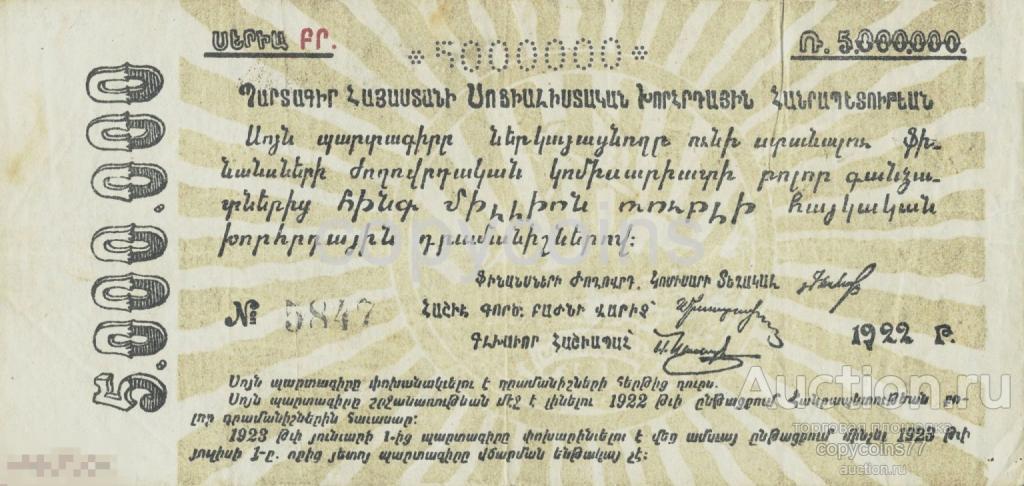 ՍԵՐԻԱ ԲՐ.
*5000000*
Ռ. 5.000.000.
5.000.000
ՊԱՐՏԱԳԻՐ ՀԱՅԱՍՏԱՆԻ ՍՈՑԻԱԼԻՍՏԱԿԱՆ ԽՈՐՀՐԴԱՅԻՆ ՀԱՆՐԱՊԵՏՈՒԹԵԱՆ
Սոյն պարտագիրը ներկայացնողը ունի ստանալու Ֆի-
նանսների Ժողովրդական Կոմիսարիատի բոլոր գանձա-
տներից հինգ միլլիոն ռուբլի հայկական
խորհրդային դրամանիշներով:
ՖԻՆԱՆՍՆԵՐԻ ԺՈՂՈՎՐԴ. ԿՈՄԻՍԱՐԻ ՏԵՂԱԿԱԼ
ՀԱՇԻՒ. ԳՈՐԾ. ԲԱԺՆԻ ՎԱՐԻՉ
ԳԼԽԱՒՈՐ ՀԱՇՒԱՊԱՀ
№ 5847
1922 Թ.
Սոյն պարտագիրը փոխանակւելու է դրամանիշների հերթից դուրս.
Սոյն պարտագիրը շրջանառութեան մէջ է լինելու 1922 թւի ընթացքում Հանրապետութեան բո-
լոր դրամանիշներին հաւասար:
1923 թւի յունւարի 1-ից պարտագիրը փոխարինւելու է վեց ամսւայ ընթացքում մինչև 1923 թւի
յուլիսի 1-ը. որից յետոյ պարտագիրը վճարման ենթակայ չէ:
copycoins
Auction.ru
торговая площадка
copycoins77
auction.ru